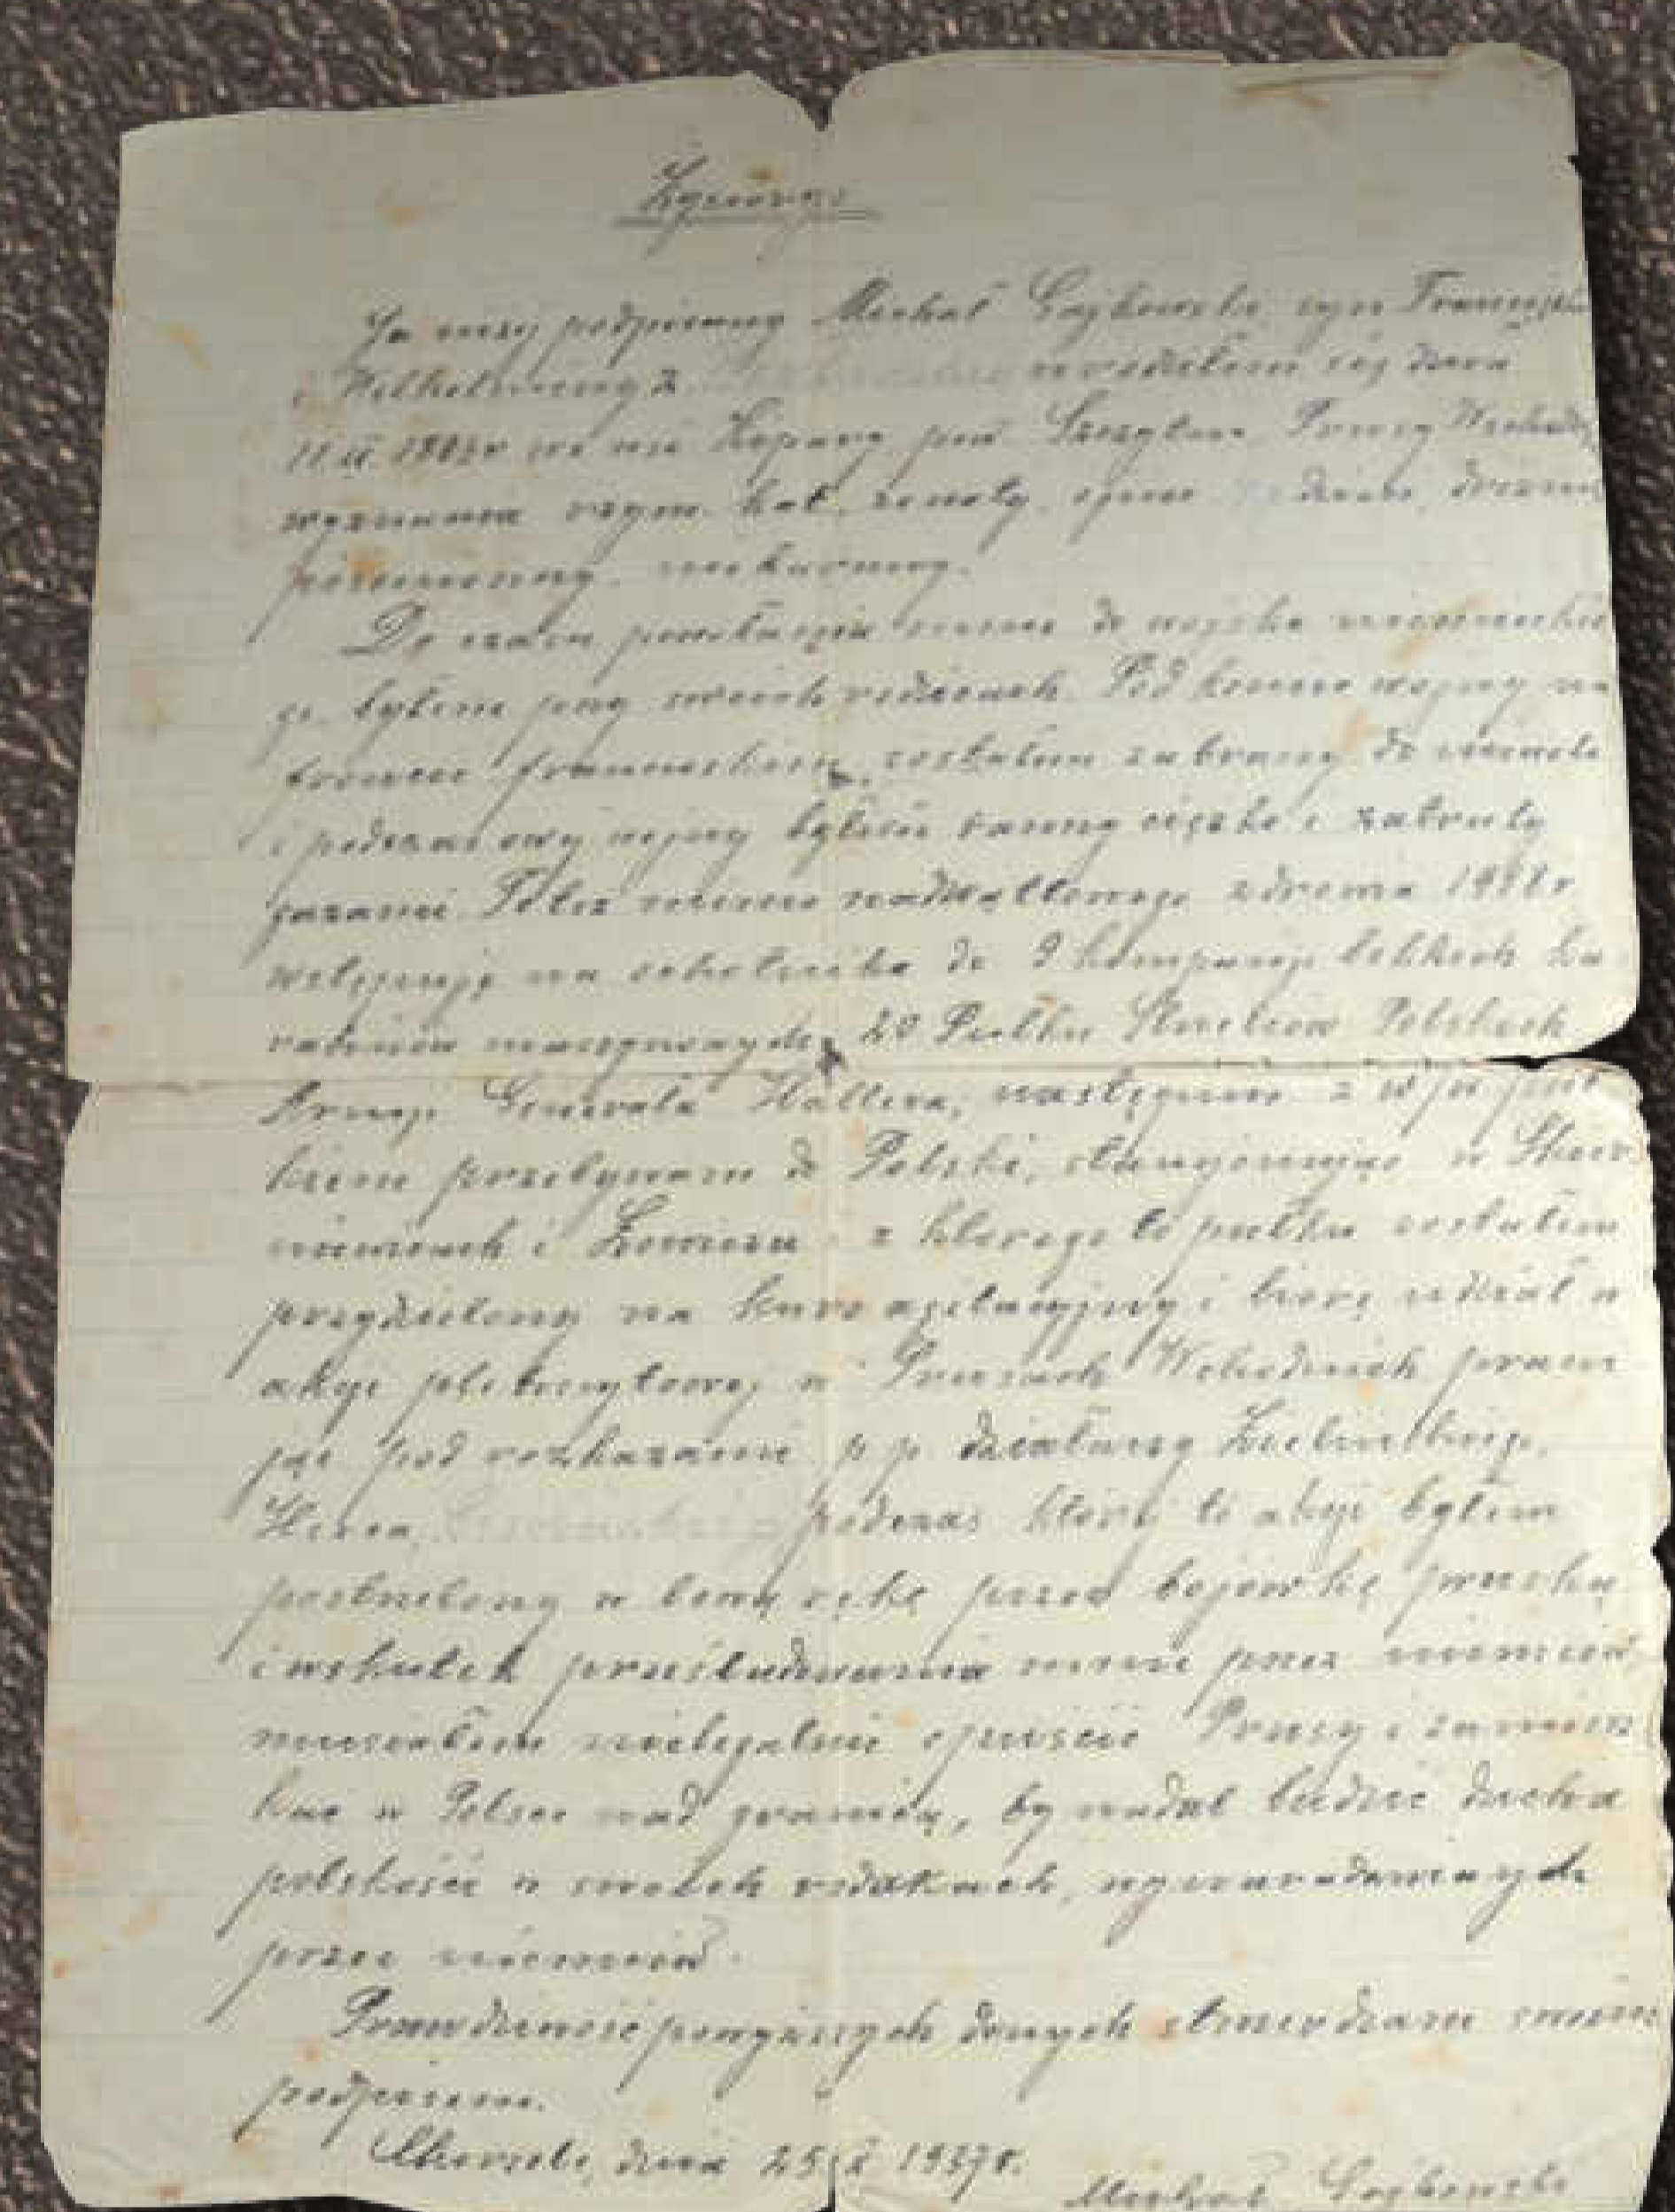 Życiorys
Ja niżej podpisany Michał Gajkowski syn Franciszka
i Wilhelminy z urodziłem się dnia
11.II. 189 r we wsi pow. Szczytno Prusy Wschodn
wyznania rzym. kat. żonaty, ojciec dzieci,
piśmienny. niekarany.
Do czasu powołania mnie do wojska niemieckie
go byłem przy swoich rodzicach. Pod koniec wojny na
froncie francuskim zostałem zabrany do niewoli
i podczas owej wojny byłem ranny ciężko i zatruty
gazami. Toteż mimo nadwątlonego zdrowia 1918 r
wstępuję na ochotnika do 9 kompanji lekkich ka
rabinów maszynowych, 20 Pułku Strzelców Polskich
Armji Generała Hallera, następnie z w/w puł
kiem przebywam do Polski, stacjonując w Skier
niewicach i Łowiczu z którego to pułku zostałem
przydzielony na kurs agitacyjny i biorę udział w
akcji plebiscytowej w Prusach Wschodnich pracu
jąc pod rozkazami p.p. działaczy Zielińskiego,
Herca, podczas której to akcji byłem
postrzelony w lewą rękę przez bojówkę pruską
i wskutek prześladowania mnie przez niemców
musiałem nielegalnie opuścić Prusy i zamiesz
kać w Polsce nad granicą, by nadal budzić ducha
polskości w swoich rodakach, wynarodowionych
przez niemców.
Prawdziwość powyższych danych stwierdzam swoim
podpisem.
Chorzele, dnia 25 X 1937 r.
Michał Gajkowski